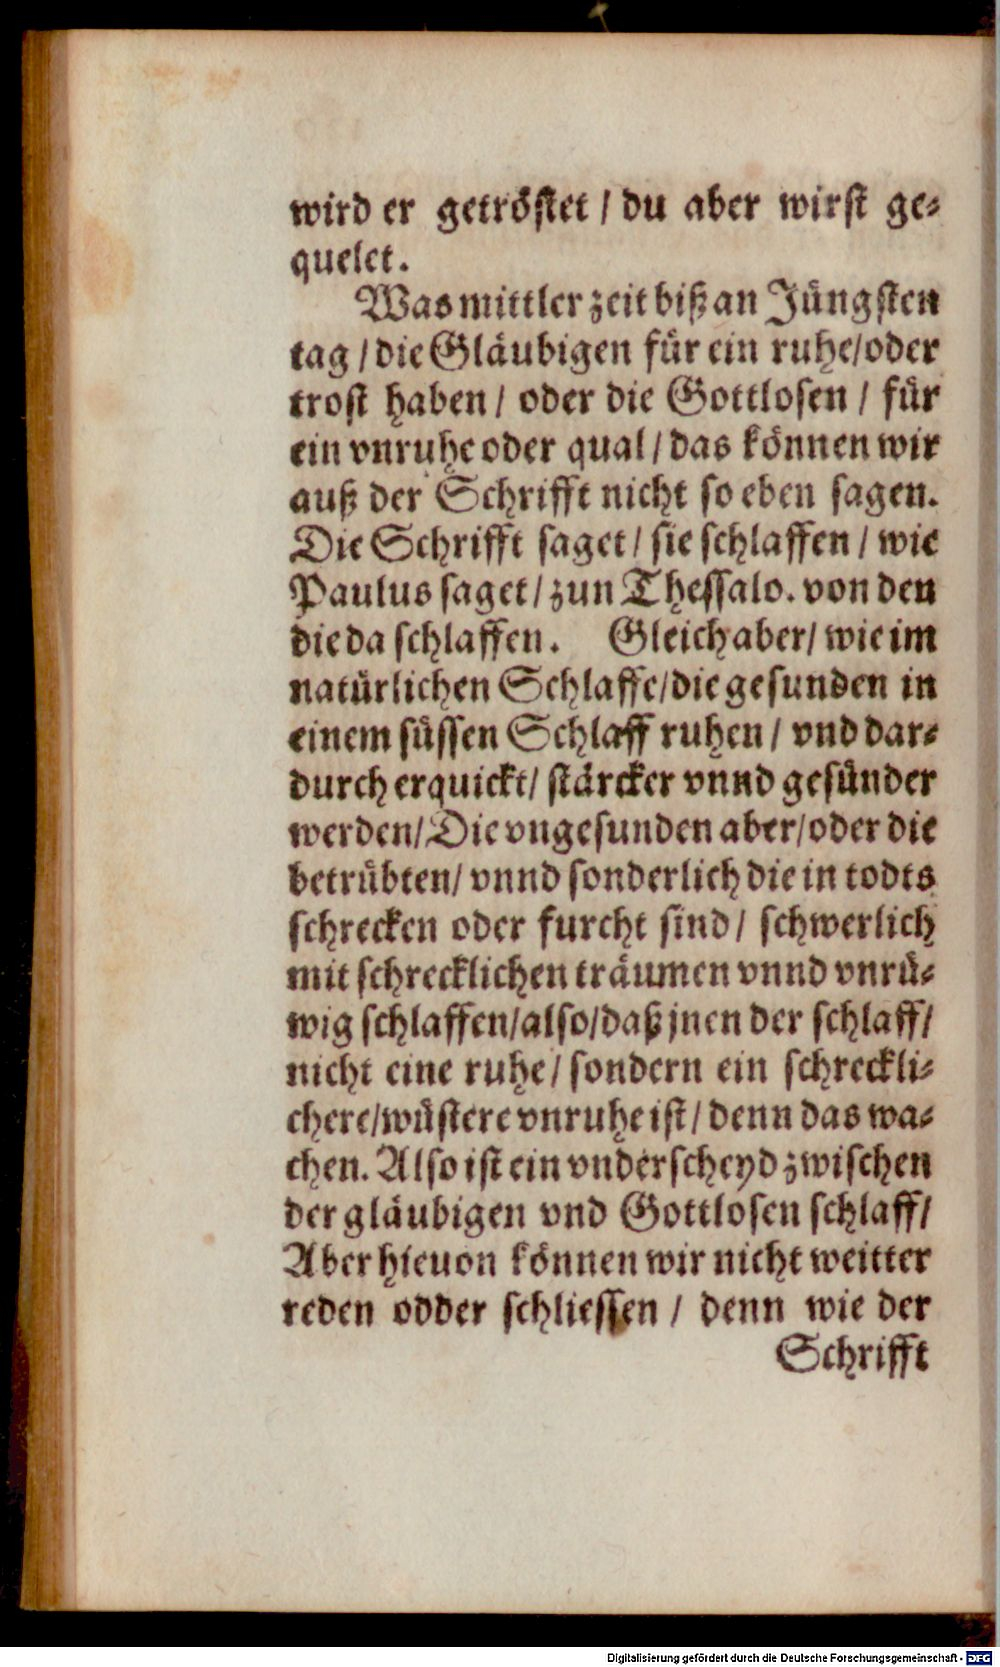 wird er getröstet / du aber wirst ge-
quelet.
Was mittler zeit biß an Jüngsten
tag / die Gläubigen für ein ruhe/oder
trost haben / oder die Gottlosen / für
ein vnruhe oder qual / das können wir
auß der Schrifft nicht so eben sagen.
Die Schrifft saget / sie schlaffen / wie
Paulus saget / zun Thessalo. von den
die da schlaffen. Gleich aber / wie im
natürlichen Schlaffe/die gesunden in
einem süssen Schlaff ruhen / vnd dar-
durch erquickt / stärcker vnnd gesünder
werden/Die vngesunden aber/oder die
betrübten / vnnd sonderlich die in todts
schrecken oder furcht sind / schwerlich
mit schrecklichen träumen vnnd vnrü-
wig schlaffen/also/daß jnen der schlaff/
nicht eine ruhe / sondern ein schreckli-
chere/wüstere vnruhe ist / denn das wa-
chen. Also ist ein vnderscheyd zwischen
der gläubigen vnd Gottlosen schlaff/
Aber hieuon können wir nicht weitter
reden odder schliessen / denn wie der
Schrifft
Digitalisierung gefördert durch die Deutsche Forschungsgemeinschaft - DFG